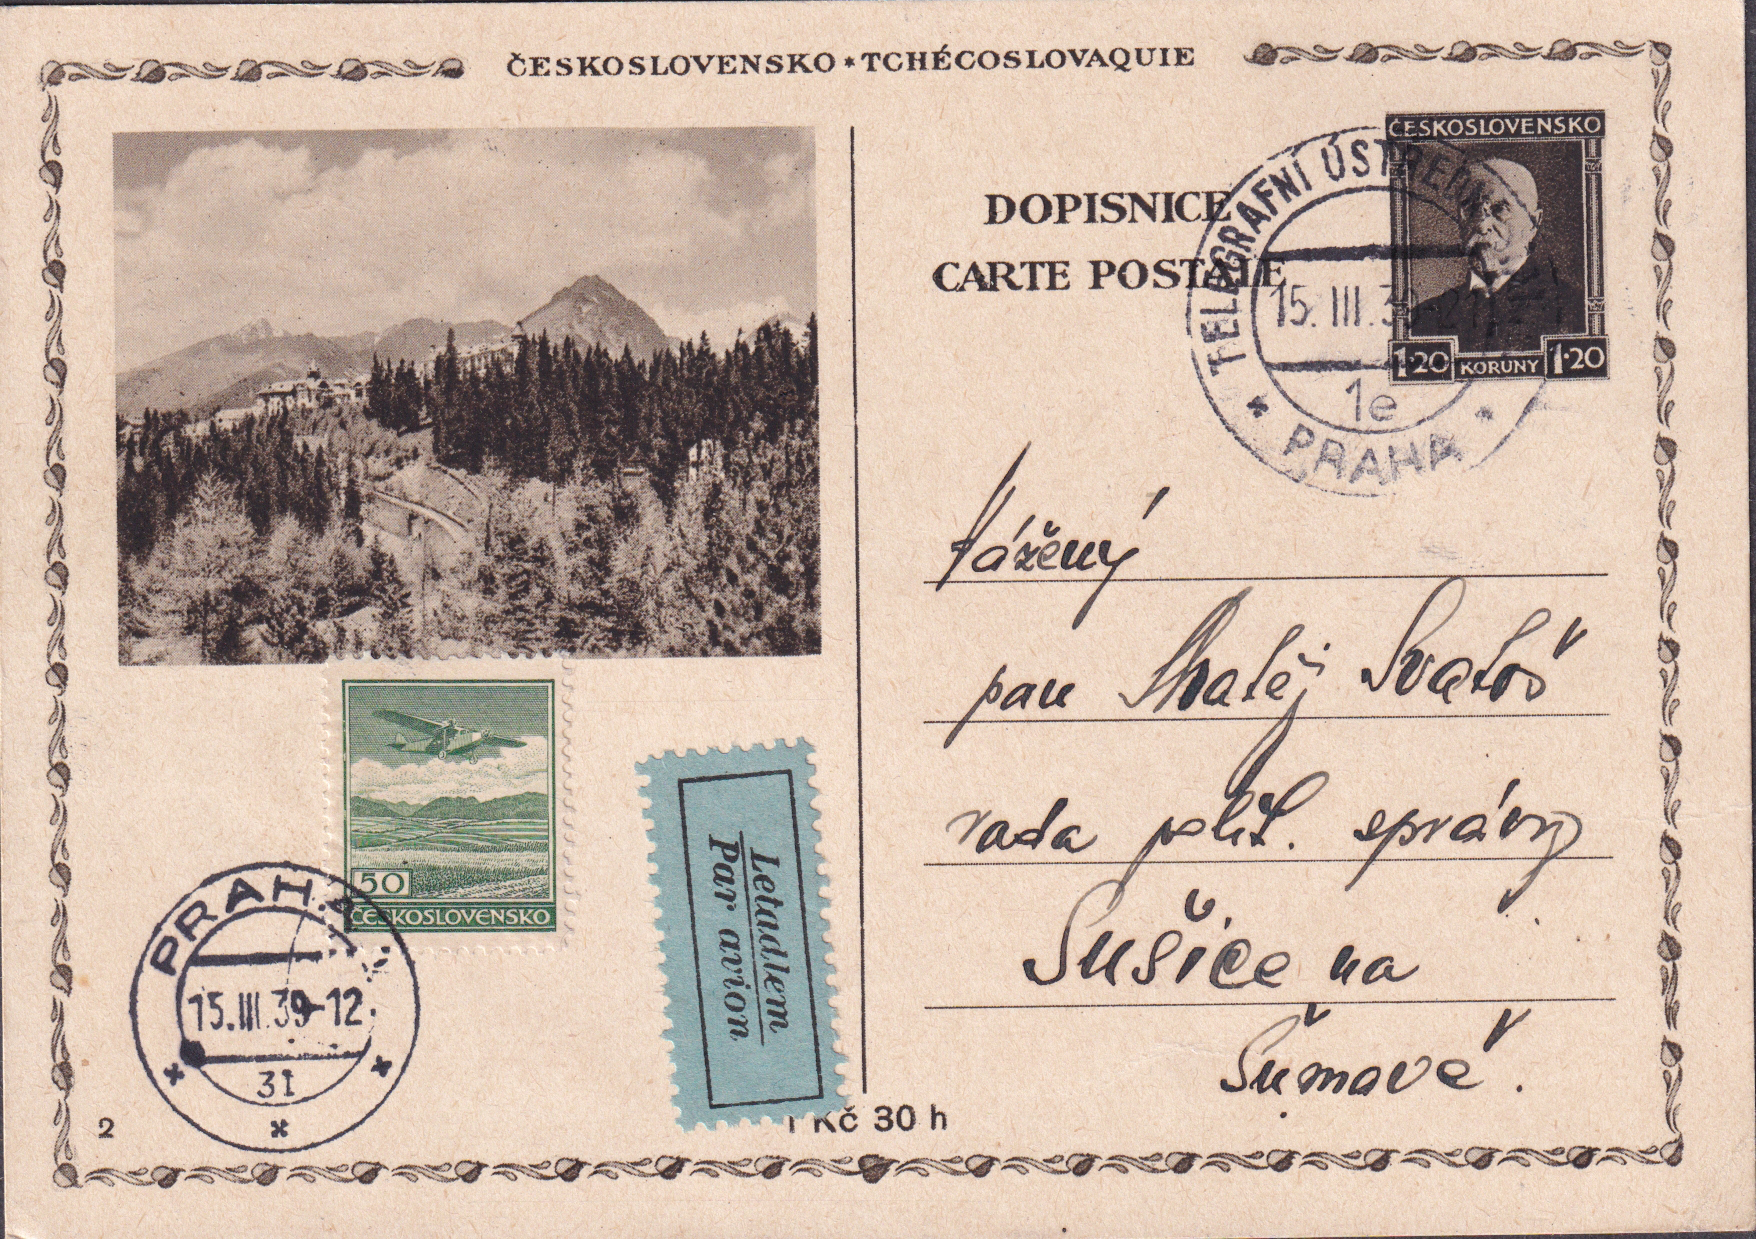 ČESKOSLOVENSKO * TCHÉCOSLOVAQUIE
DOPISNICE
CARTE POSTALE
ČESKOSLOVENSKO
1·20 KORUNY 1·20
TELEGRAFNÍ ÚSTŘEDNA
15. III. 39-21
1e
* PRAHA *
Vážený
pan Matěj Svatoš
rada polit. správy
Sušice na
Šumavě.
50
ČESKOSLOVENSKO
Letadlem
Par avion
PRAHA
15. III. 39-12
31
2
1 Kč 30 h